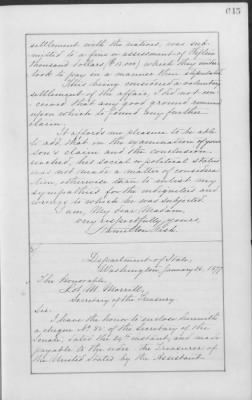 615
settlement with the nations, was sub-
mitted to a fine or assessment of fifteen
thousand dollars ($15,000) which they under-
took to pay in a manner then stipulated.
This being considered a voluntary
settlement of the affair, I did not con-
ceive that any good ground remained
upon which to found any further
claim.
It affords me pleasure to be able
to add, that in the examination of your
son's claim and the conclusion
reached, his social or political status
was not made a matter of considera-
tion, otherwise than to enlist my
sympathies for the indignities and
wrongs to which he was subjected.
I am, My dear Madam,
very respectfully yours,
Hamilton Fish.
Department of State,
Washington January 26, 1877
The Honorable
Lot M. Morrill,
Secretary of the Treasury.
Sir:
I have the honor to enclose herewith
a cheque No. 82 of the Secretary of the
Senate, dated the 24th instant, and made
payable to the order the Treasurer of
the United States by the Assistant